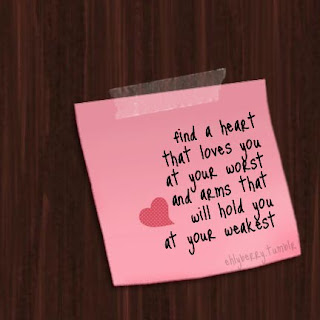 find a heart
that loves you
at your worst
and arms that
will hold you
at your weakest
ehlyberry.tumblr